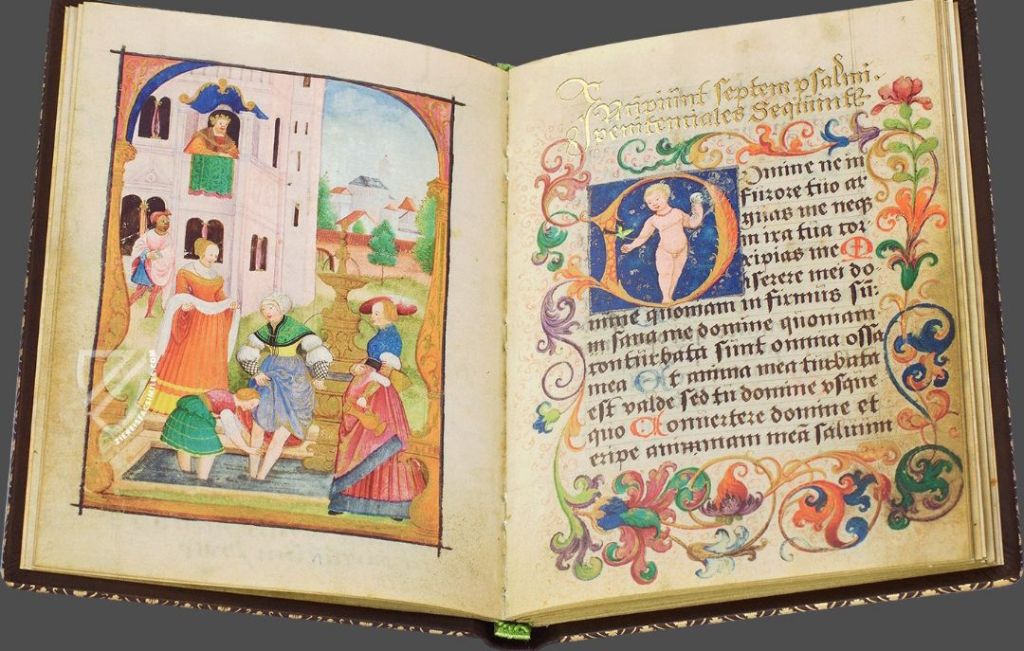 Incipiunt septem psalmi.
penitentiales Sequitur
Domine ne in
furore tuo ar
guas me neqz
in ira tua cor
ripias me M
iserere mei do
mine quoniam in firmus sū:
in sana me domine quoniam
conturbata sunt omnia ossa
mea Et anima mea turbata
est valde sed tu domine vsque
quo Conuertere domine et
eripe animam meā saluum